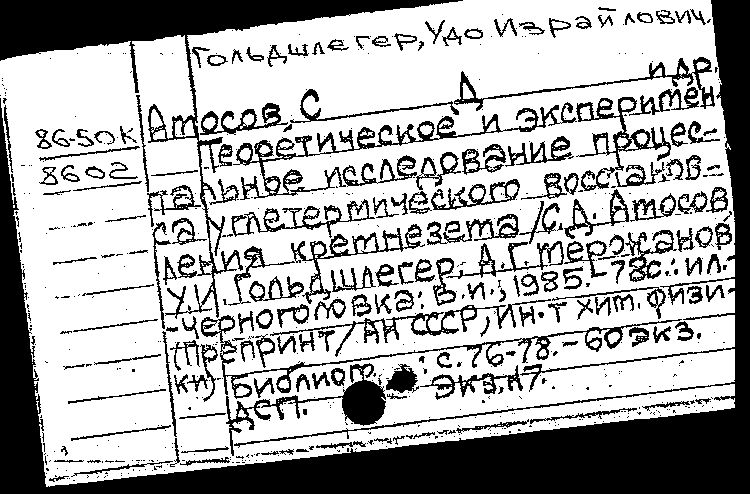 Гольдшлегер, Удо Израйлович.
Атосов, С Д и др.
86-50К Теоретическое и эксперимен-
8602 тальное исследование процес-
са углетермического восстанов-
ления кремнезета / С.Д. Атосов
У.И. Гольдшлегер, А.Г. Мержанов
-Черноголовка: Б.и., 1985.-78с.: ил.-
(Препринт / АН СССР, Ин-т хим. физи-
ки) Библиогр : с.76-78.-60 экз.
ДСП. Экз.н7.